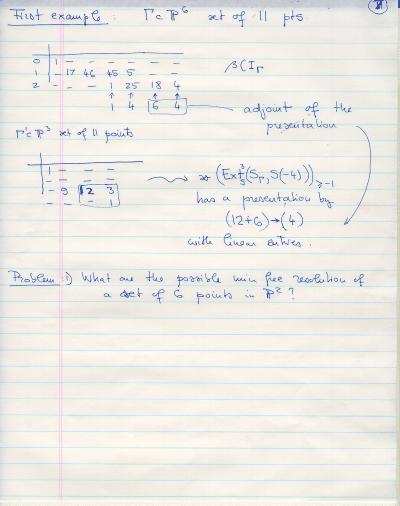 First example: Γ⊂ℙ⁶ set of 11 pts
0 | 1 – – – – –
1 | – 17 46 45 5 – – β(I_Γ
2 | – – – 1 25 18 4
↑ ↑ ↑ ↑
1 4 6 4 adjoint of the
presentation
Γ'⊂ℙ³ set of 11 points
1 – – –
– – – –
– 9 12 3 (Ext³_S(S_Γ, S(-4)))≥-1
– – – 1 has a presentation by
(12+6) → (4)
with linear entries.
Problem 1) What are the possible min free resolution of
a set of 6 points in ℙ²?